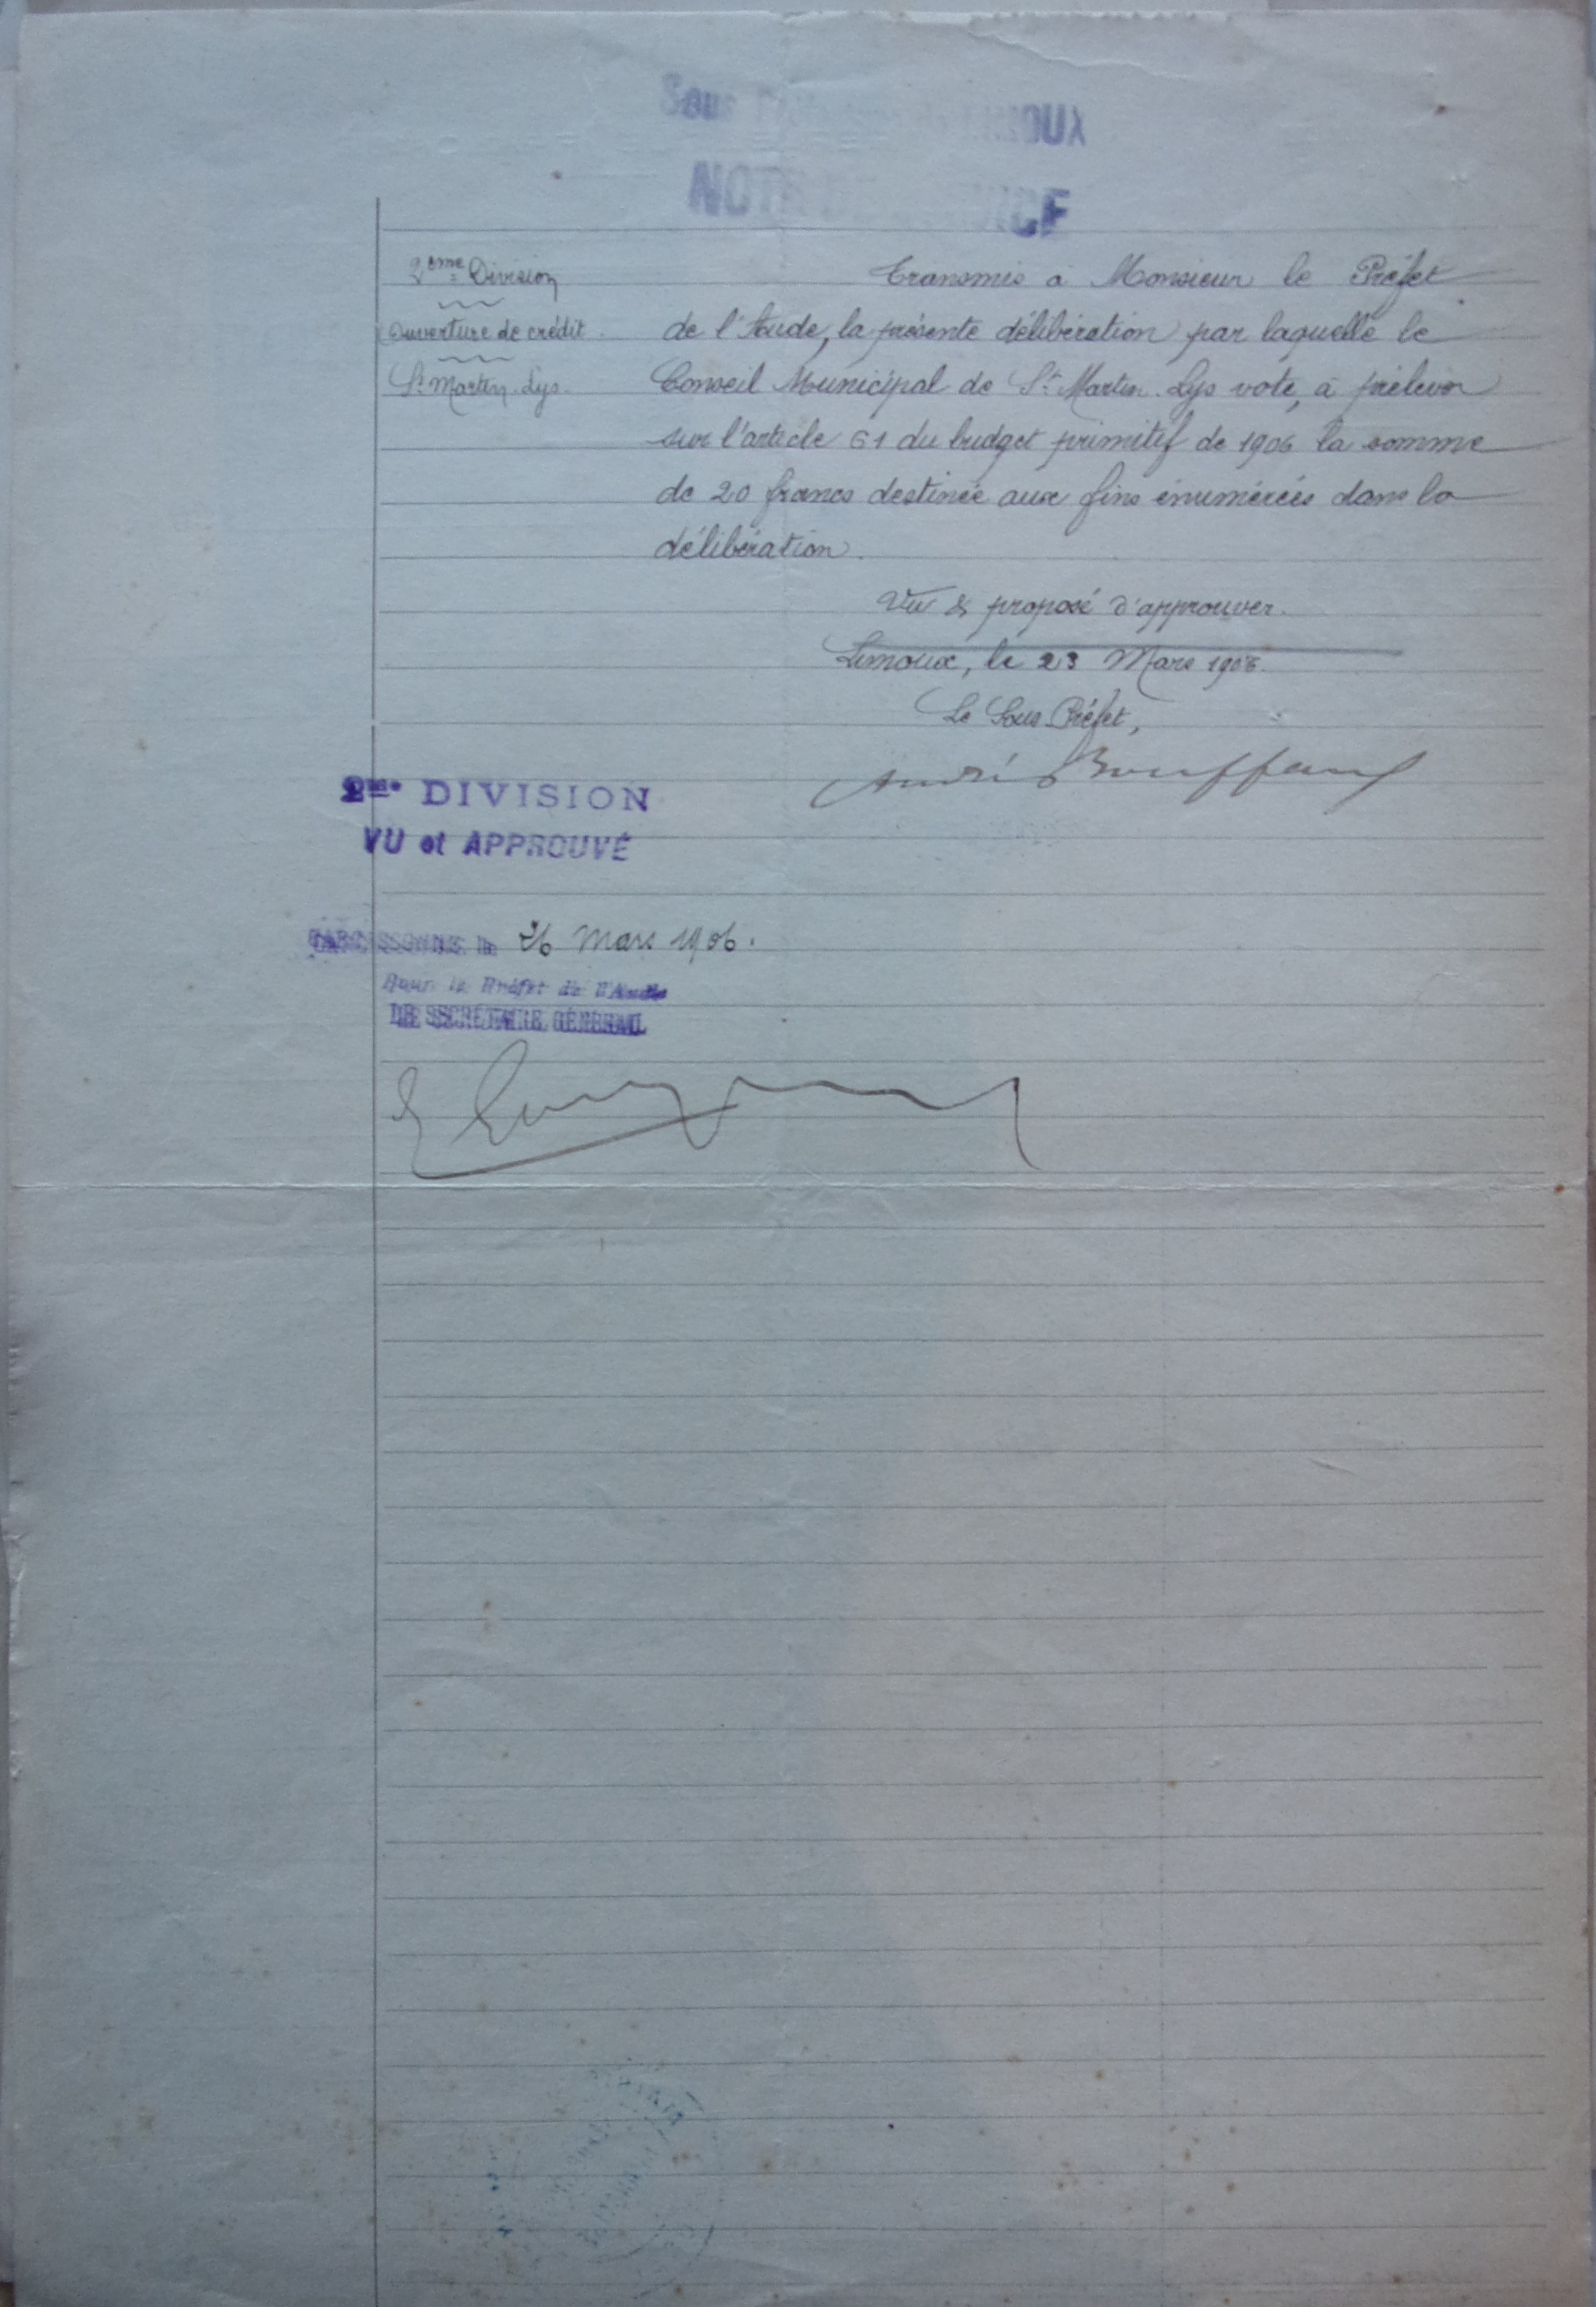 Sous Préfecture de LIMOUX
NOTE DE SERVICE
2ème Division
Ouverture de crédit.
St Martin-Lys.
Transmis à Monsieur le Préfet
de l'Aude, la présente délibération par laquelle le
Conseil Municipal de St Martin-Lys vote, à prélever
sur l'article 61 du budget primitif de 1906 la somme
de 20 francs destinée aux fins énumérées dans la
délibération.
Vu & proposé d'approuver.
Limoux, le 23 Mars 1906.
Le Sous-Préfet,
2me DIVISION
VU et APPROUVÉ
CARCASSONNE le 26 Mars 1906.
Pour le Préfet de l'Aude
LE SECRÉTAIRE GÉNÉRAL